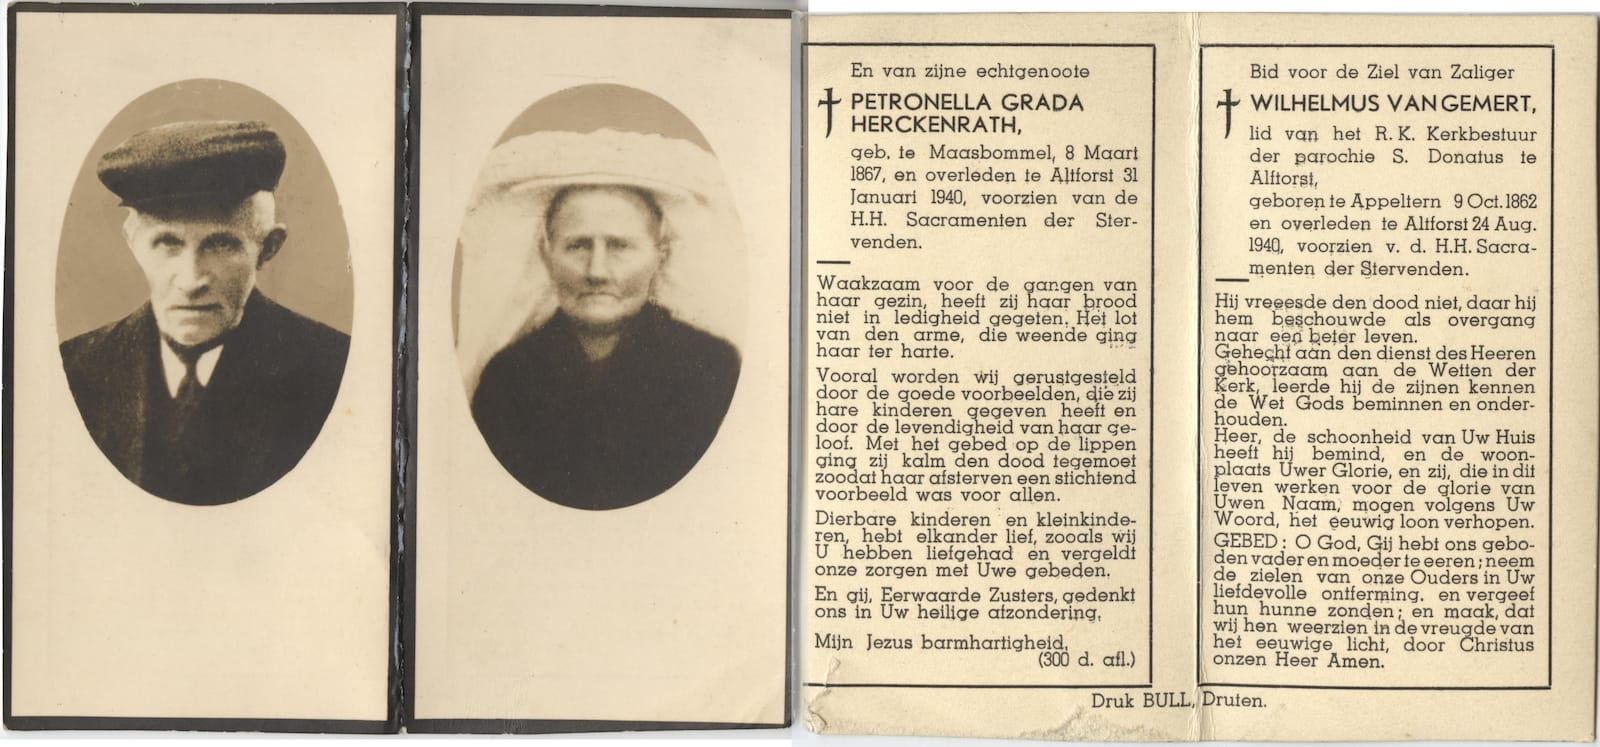 En van zijne echtgenoote
PETRONELLA GRADA
HERCKENRATH,
geb. te Maasbommel, 8 Maart
1867, en overleden te Altforst 31
Januari 1940, voorzien van de
H.H. Sacramenten der Ster-
venden.
Waakzaam voor de gangen van
haar gezin, heeft zij haar brood
niet in ledigheid gegeten. Het lot
van den arme, die weende ging
haar ter harte.
Vooral worden wij gerustgesteld
door de goede voorbeelden, die zij
hare kinderen gegeven heeft en
door de levendigheid van haar ge-
loof. Met het gebed op de lippen
ging zij kalm den dood tegemoet
zoodat haar afsterven een stichtend
voorbeeld was voor allen.
Dierbare kinderen en kleinkinde-
ren, hebt elkander lief, zooals wij
U hebben liefgehad en vergeldt
onze zorgen met Uwe gebeden.
En gij, Eerwaarde Zusters, gedenkt
ons in Uw heilige afzondering.
Mijn Jezus barmhartigheid,
(300 d. afl.)
Bid voor de Ziel van Zaliger
WILHELMUS VAN GEMERT,
lid van het R. K. Kerkbestuur
der parochie S. Donatus te
Altforst,
geboren te Appeltern 9 Oct. 1862
en overleden te Altforst 24 Aug.
1940, voorzien v. d. H.H. Sacra-
menten der Stervenden.
Hij vreesde den dood niet, daar hij
hem beschouwde als overgang
naar een beter leven.
Gehecht aan den dienst des Heeren
gehoorzaam aan de Wetten der
Kerk, leerde hij de zijnen kennen
de Wet Gods beminnen en onder-
houden.
Heer, de schoonheid van Uw Huis
heeft hij bemind, en de woon-
plaats Uwer Glorie, en zij, die in dit
leven werken voor de glorie van
Uwen Naam, mogen volgens Uw
Woord, het eeuwig loon verhopen.
GEBED: O God, Gij hebt ons gebo-
den vader en moeder te eeren; neem
de zielen van onze Ouders in Uw
liefdevolle ontferming. en vergeef
hun hunne zonden; en maak, dat
wij hen weerzien in de vreugde van
het eeuwige licht, door Christus
onzen Heer Amen.
Druk BULL, Druten.